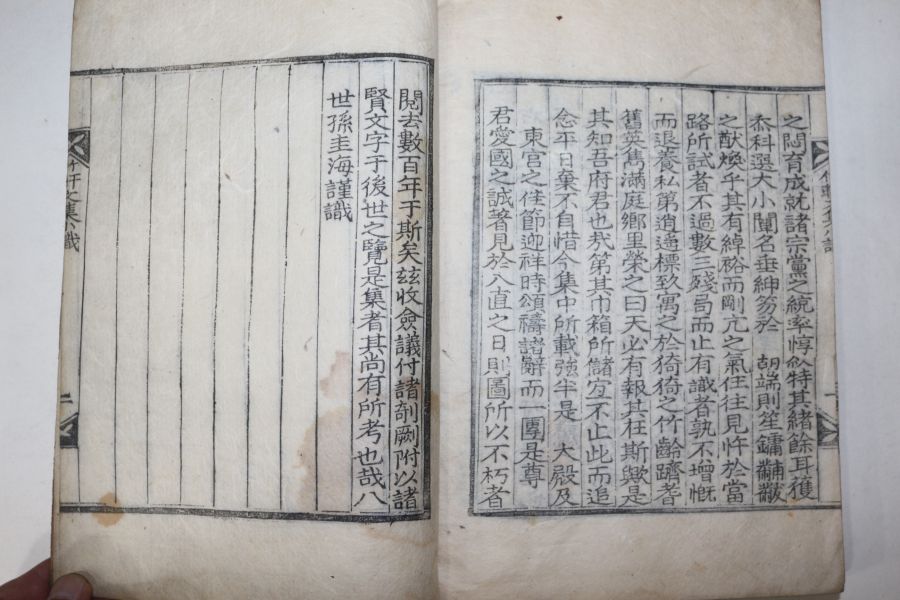 之閎育成就諸宗黨之統率惇似特其緒餘耳獲
忝科選大小闈名垂紳笏於 胡端則笙鏞黼黻
之猷煥乎其有綽裕而剛亢之氣往往見忤於當
路所試者不過數三殘局而止有識者孰不增慨
而退養私第逍遙標致寓之於猗猗之竹齡躋耆
舊英雋滿庭鄉里榮之曰天必有報其在斯歟是
其知吾府君也哉第其巾箱所儲宜不止此而追
念平日棄不自惜今集中所載強半是 大殿及
東宮之佳節迎祥時頌禱諸辭而一團是尊
君愛國之誠著見於入直之日則圖所以不朽者
閱去數百年于斯矣玆收僉議付諸剞劂附以諸
賢文字于後世之覽是集者其尚有所考也哉八
世孫圭海謹識